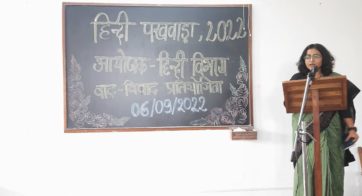 हिन्दी पखवाड़ा, 2022
आयोजक-हिन्दी विभाग
वाद-विवाद प्रतियोगिता
06/09/2022